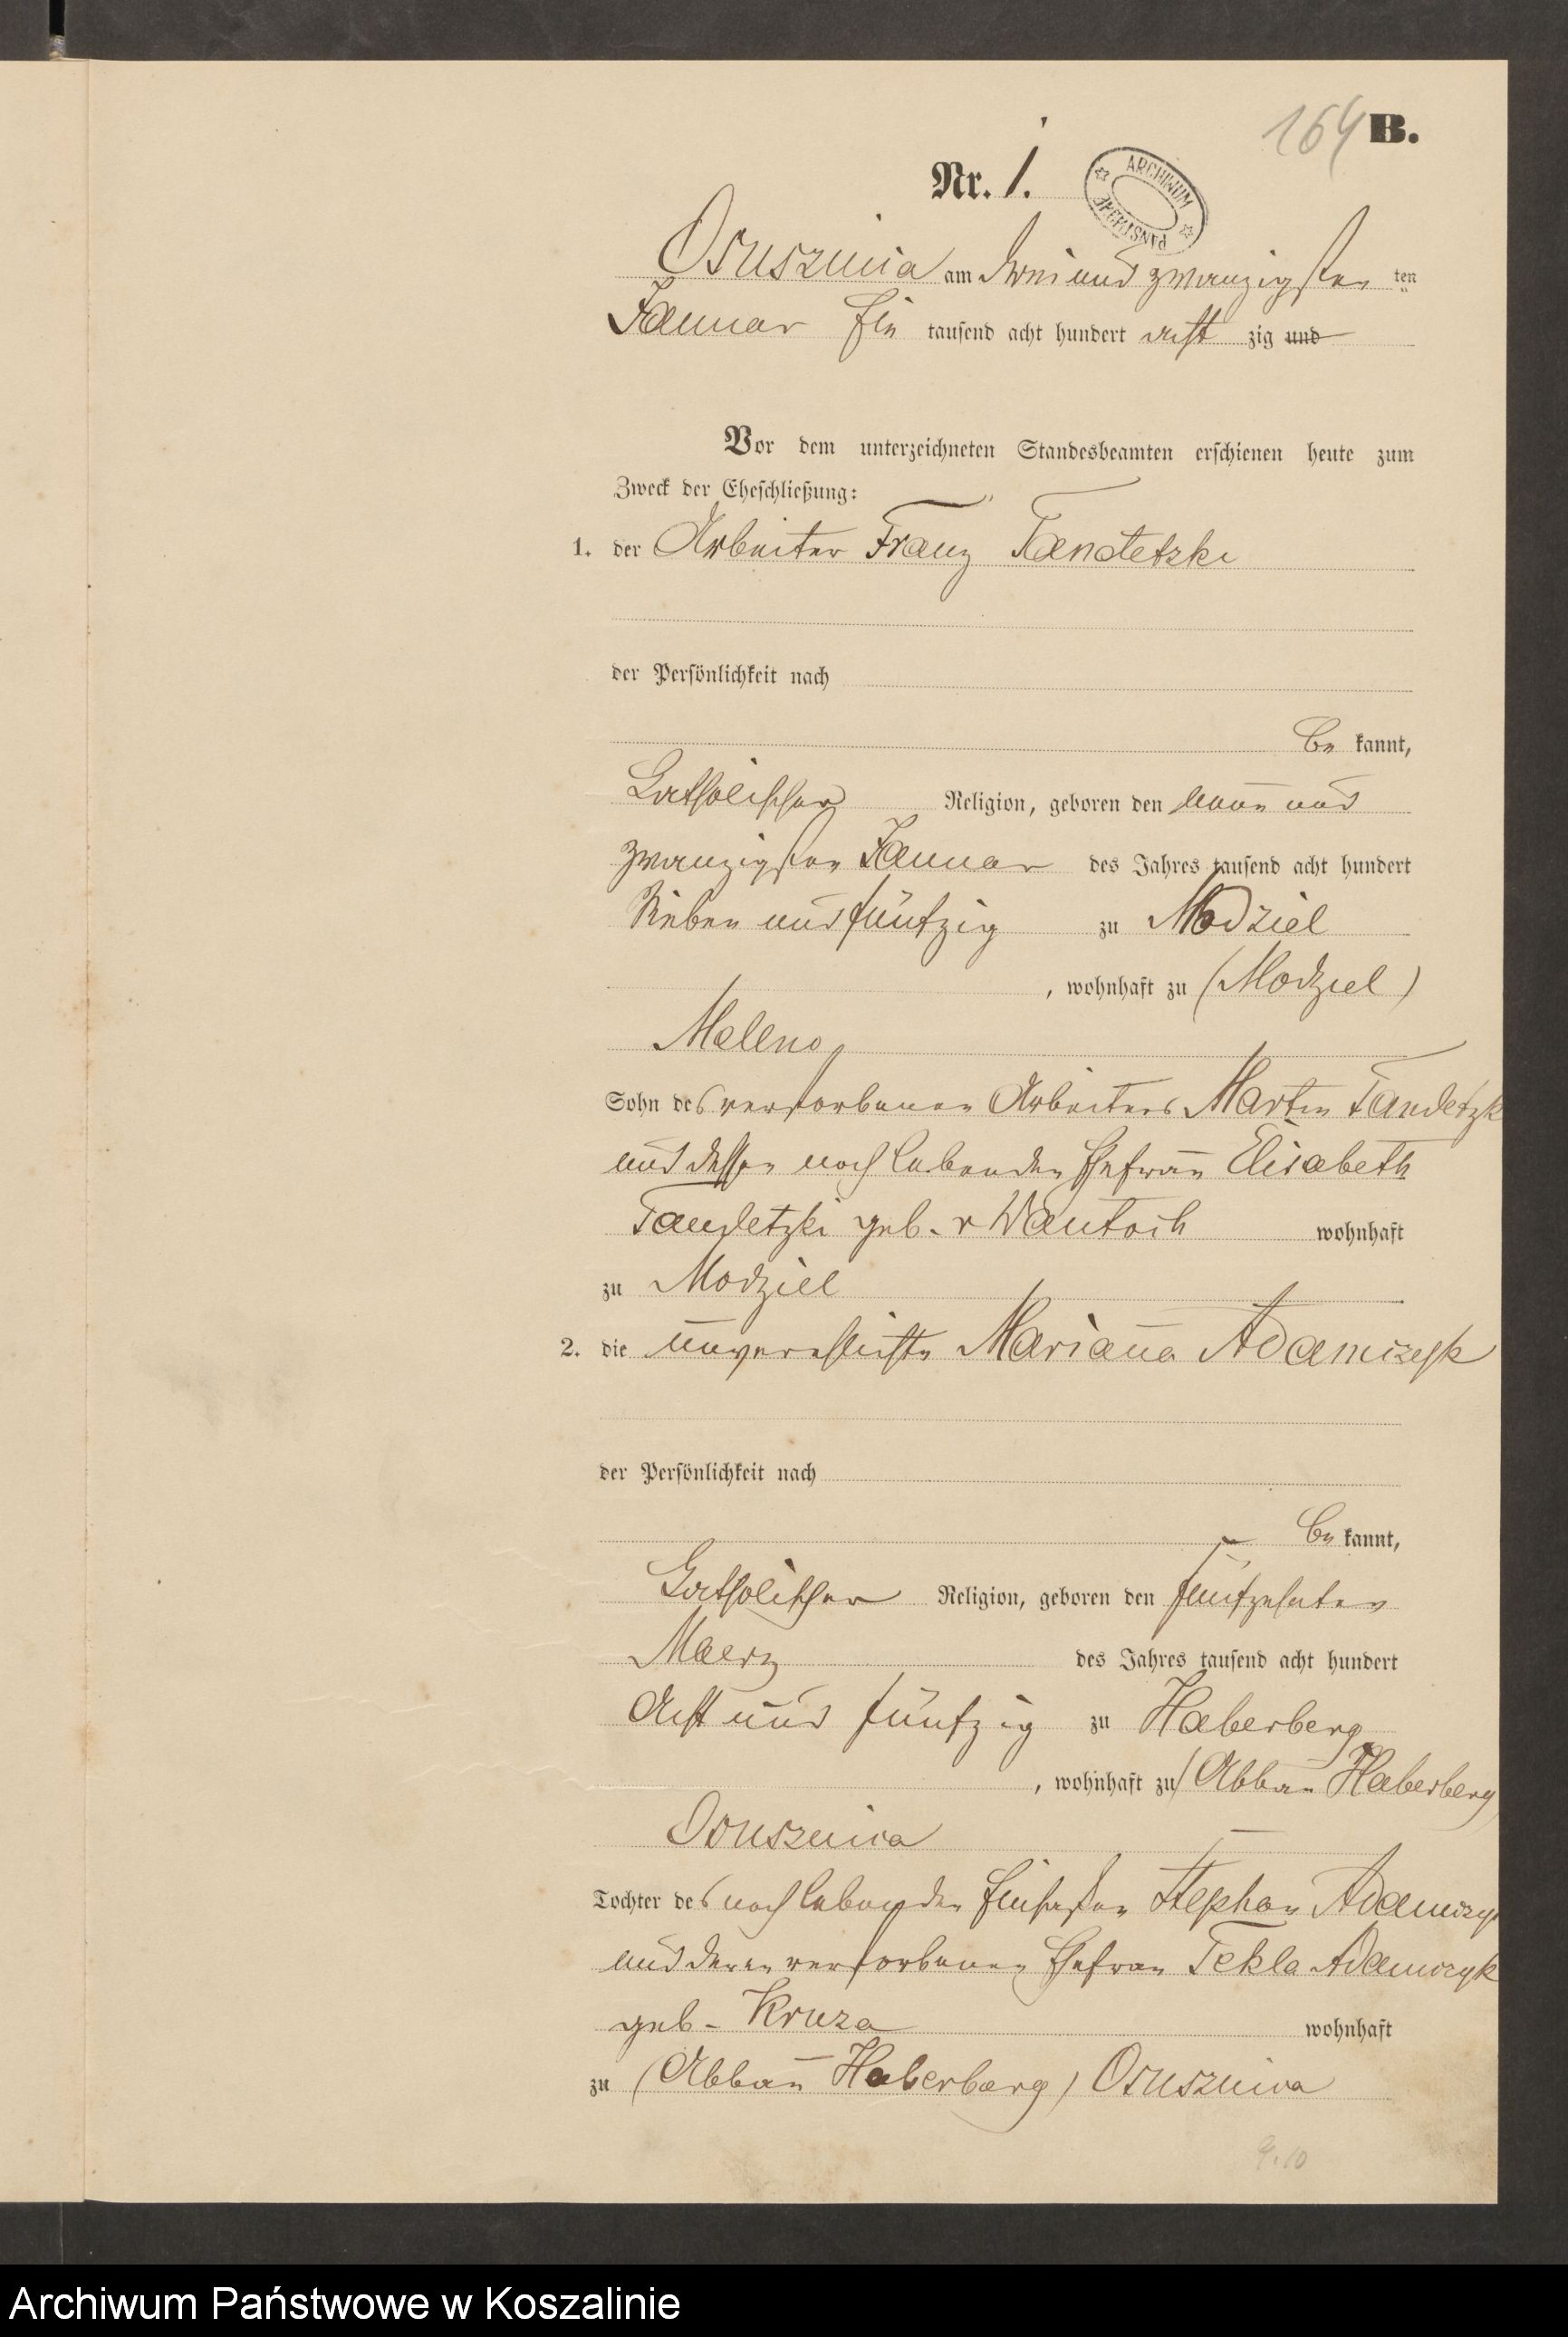 164 B.
Nr. 1.
ARCHIWUM PAŃSTWOWE
Osusznica am zwei und zwanzigsten ten
Januar Ein tausend acht hundert acht zig und
Vor dem unterzeichneten Standesbeamten erschienen heute zum
Zweck der Eheschließung:
1. der Arbeiter Franz Tandetzki
der Persönlichkeit nach
be kannt,
katholischer Religion, geboren den neun und
zwanzigsten Januar des Jahres tausend acht hundert
Sieben und fünfzig zu Modziel
, wohnhaft zu (Modziel)
Melleno
Sohn des verstorbenen Arbeiters Martin Tandetzk
und dessen noch lebenden Ehefrau Elisabeth
Tandetzki geb. v Wantoch wohnhaft
zu Modziel
2. die unverehelichte Marianna Adamczyk
der Persönlichkeit nach
be kannt,
katholischer Religion, geboren den fünfzehnten
Maerz des Jahres tausend acht hundert
Acht und fünfzig zu Haberberg
, wohnhaft zu (Abbau Haberberg)
Osusznica
Tochter des noch lebenden Einsaßen Stephan Adamczyk
und deren verstorbenen Ehefrau Tekla Adamczyk
geb. Kruza wohnhaft
zu (Abbau Haberberg) Osusznica
9.10
Archiwum Państwowe w Koszalinie